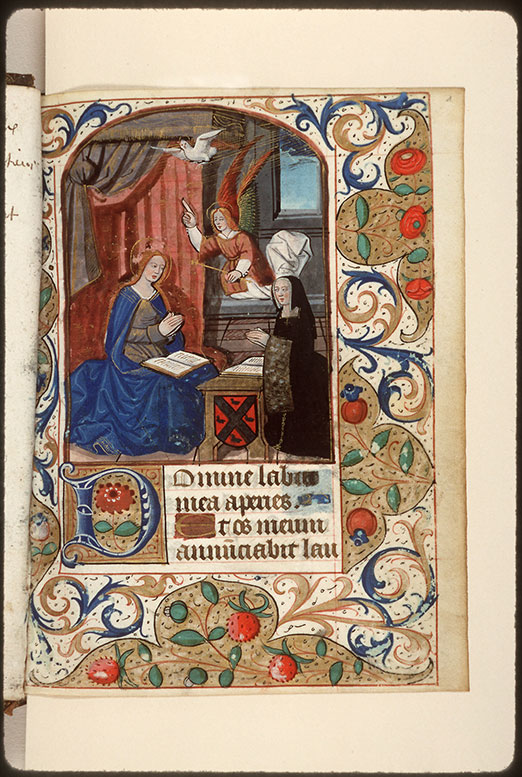 Domine labia
mea aperies.
Et os meum
annunciabit lau